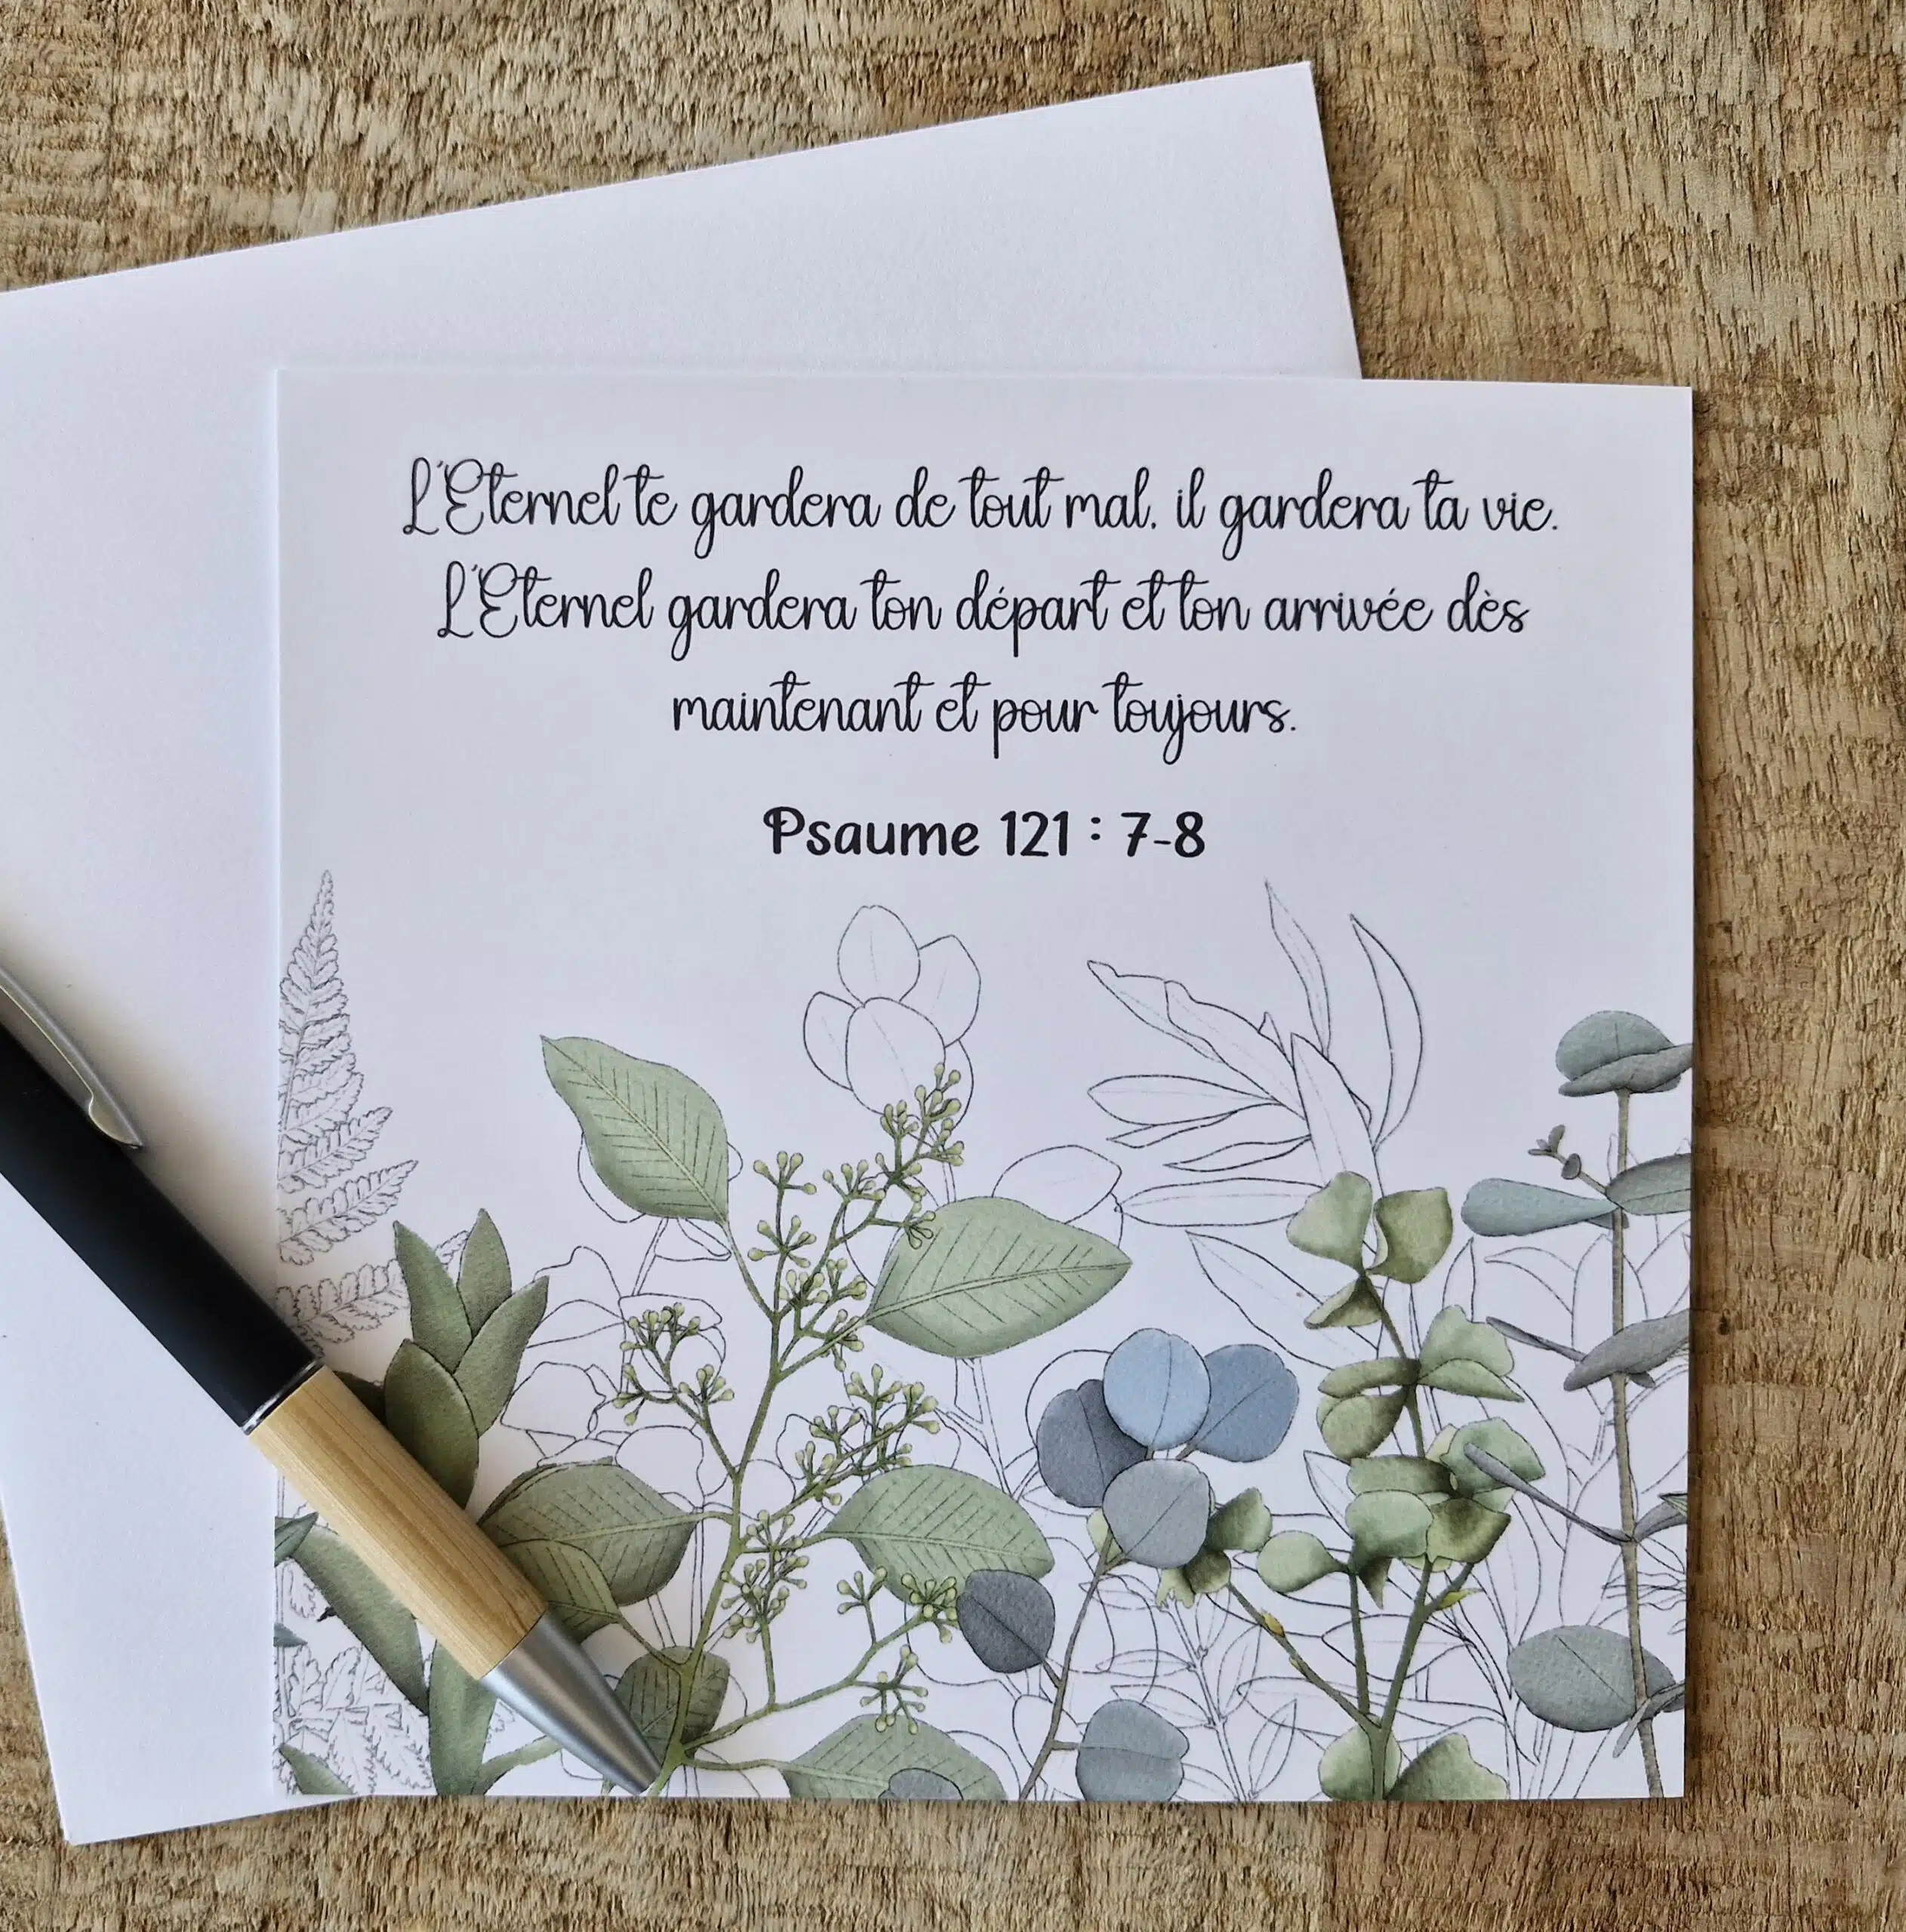 L'Eternel te gardera de tout mal, il gardera ta vie.
L'Eternel gardera ton départ et ton arrivée dès
maintenant et pour toujours.
Psaume 121 : 7-8